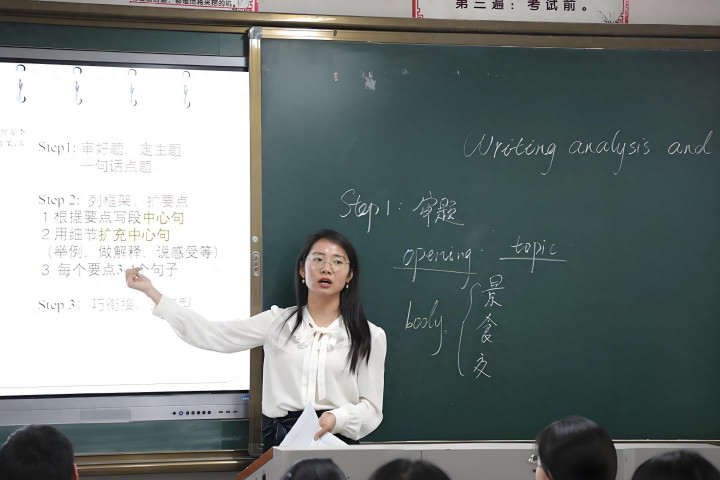 第三遍：考试前。
Step1: 审好题、定主题
一句话点题
Step 2: 列框架、扩要点
1 根据要点写段中心句
2 用细节扩充中心句
（举例、做解释、说感受等）
3 每个要点3个句子
Step 3: 巧衔接、型
Writing analysis and
Step 1: 审题
opening. topic
body
景
食
交